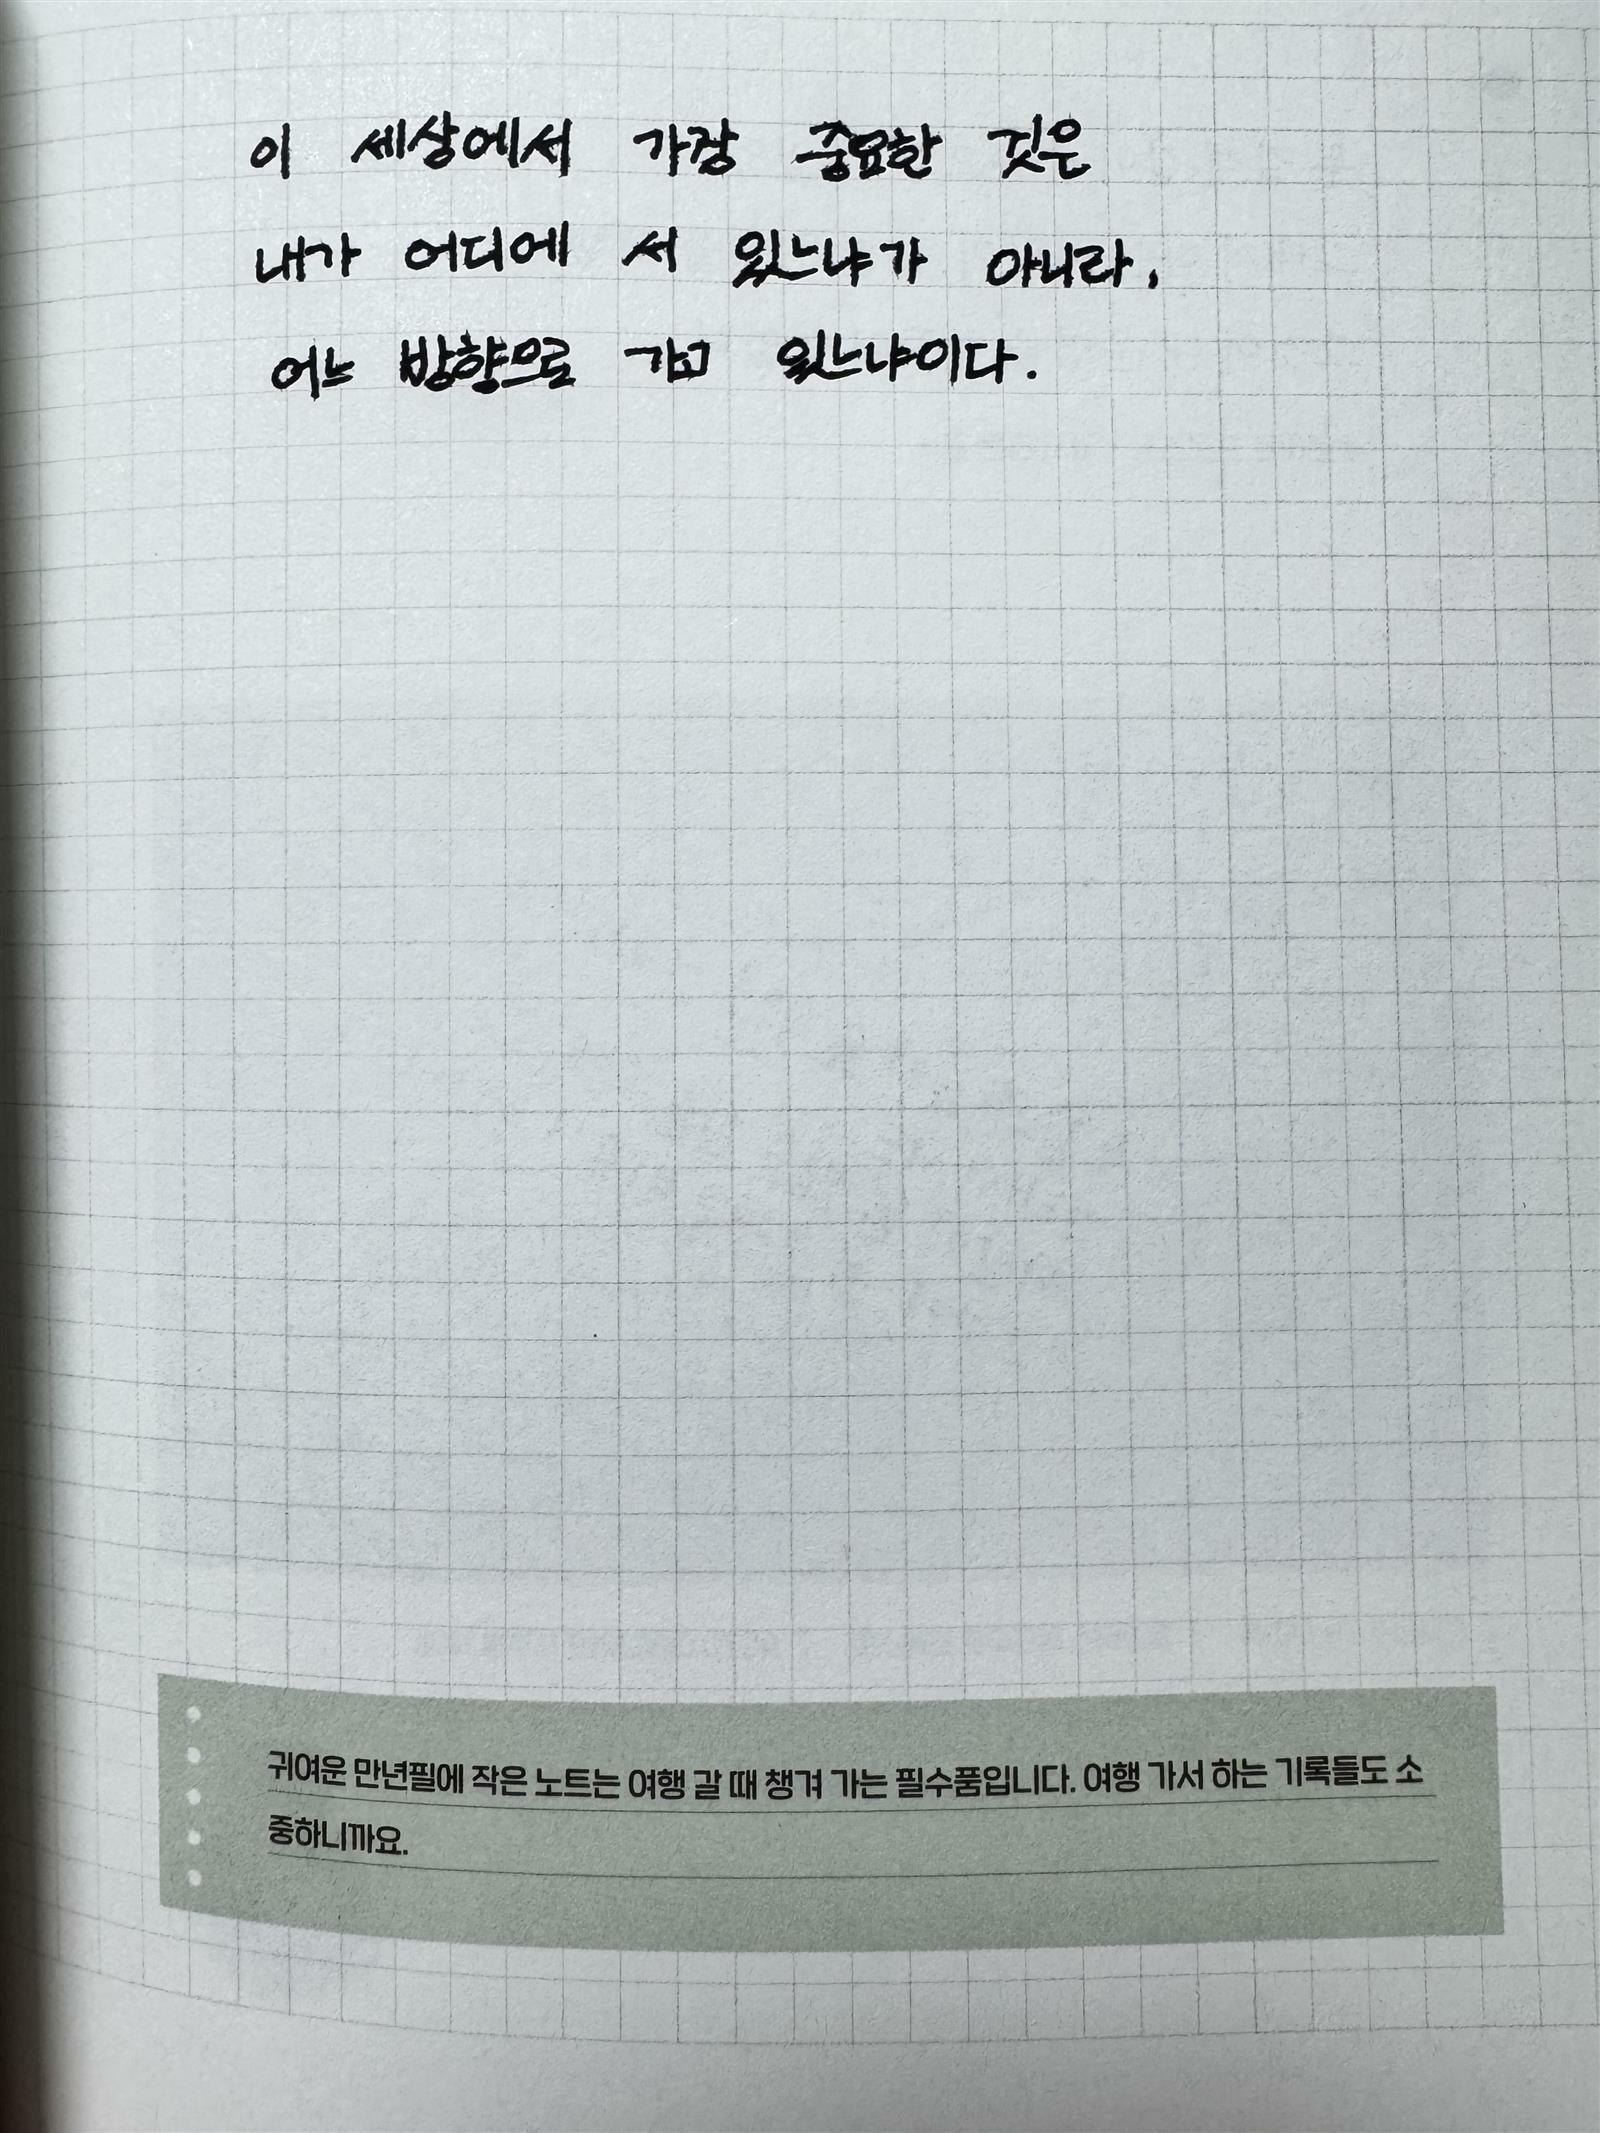 이 세상에서 가장 중요한 것은
내가 어디에 서 있느냐가 아니라,
어느 방향으로 가고 있느냐이다.
귀여운 만년필에 작은 노트는 여행 갈 때 챙겨 가는 필수품입니다. 여행 가서 하는 기록들도 소
중하니까요.